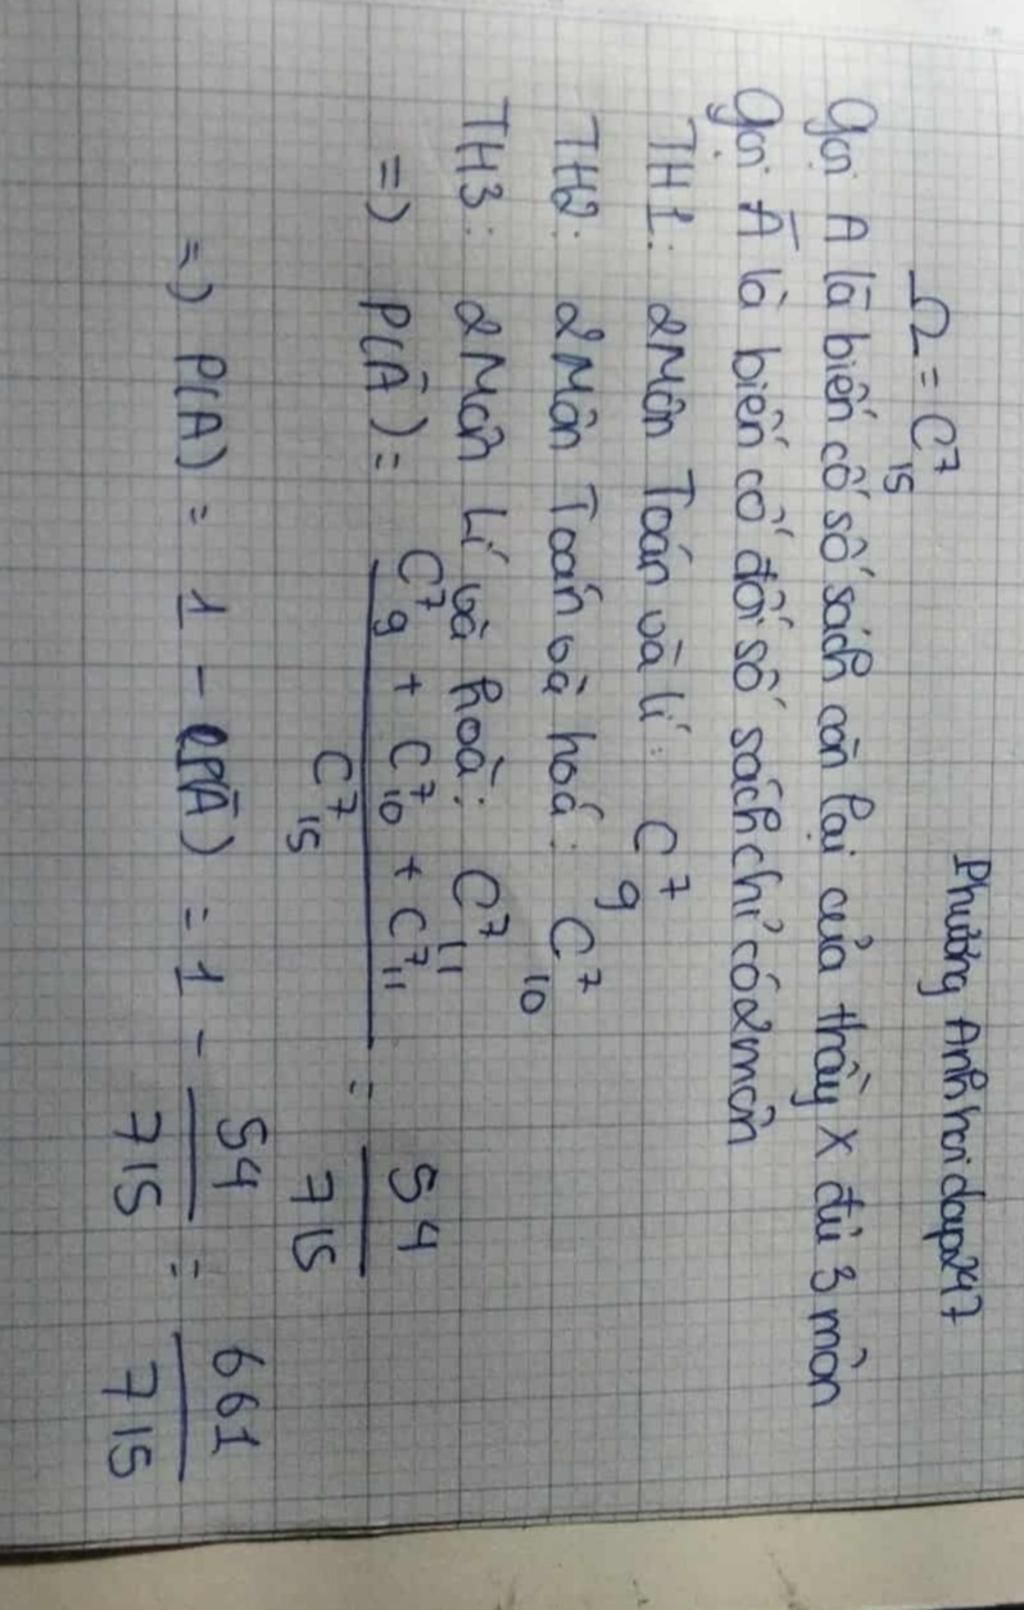 Phương Anh hoidap247
Ω = C⁷₁₅
Gọi A là biến cố số sách còn lại của thầy X đủ 3 môn
Gọi Ā là biến cố đối số sách chỉ có 2 môn
TH1: 2 Môn Toán và lí: C⁷₉
TH2: 2 Môn Toán và hoá: C⁷₁₀
TH3: 2 Môn Lí và hoá: C⁷₁₁
=) P(Ā) = (C⁷₉ + C⁷₁₀ + C⁷₁₁) / C⁷₁₅ = 54/715
=) P(A) = 1 - P(Ā) = 1 - 54/715 = 661/715